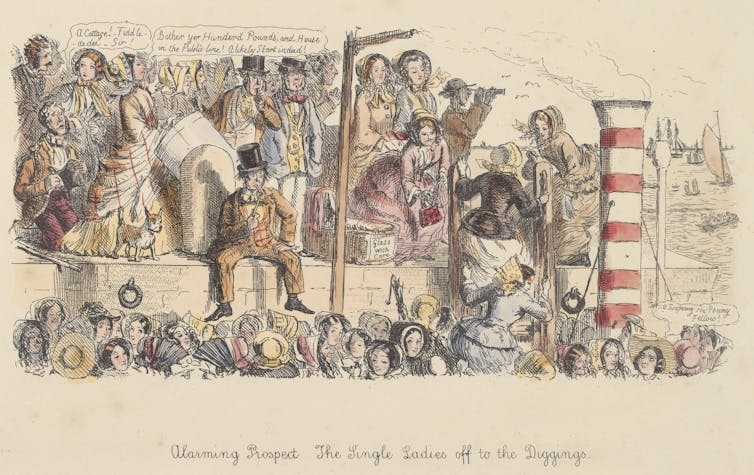 A Cottage!- Fiddle-
-de dee- Sir
Bother yer Hunderd Pounds, and House
in the Public line! A likely Start indeed!
Glass
with
Fellows!
Alarming Prospect The Single Ladies off to the Diggings.